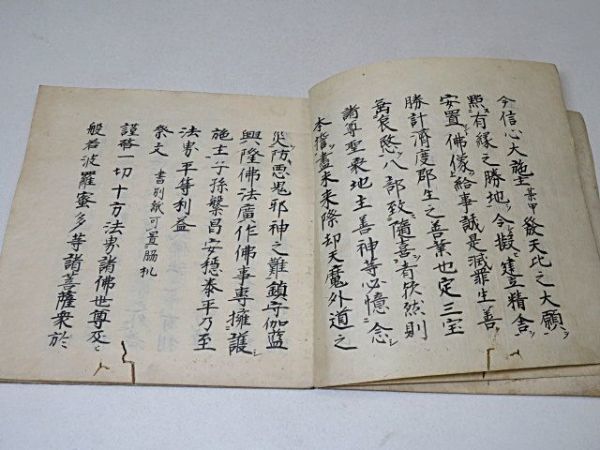 今信心大施主某甲發天比之大願ヲ
點有縁之勝地ヲ今擬建立精舎ヲ
安置佛像ヲ給事誠是滅罪生善
勝計濟度郡生之善業也定三宝
哀愍八部致隨喜者依然則
諸尊聖衆地主善神等必憶念
本誓盡未来際却天魔外道之
災防悪鬼邪神之難鎮守伽藍
興隆佛法廣作佛事専擁護
施主子孫繁昌安穏泰平乃至
法界平等利益
祭文 書別紙可置脇机
謹啓一切十方法界諸佛世尊
般若波羅蜜多等諸菩薩衆於